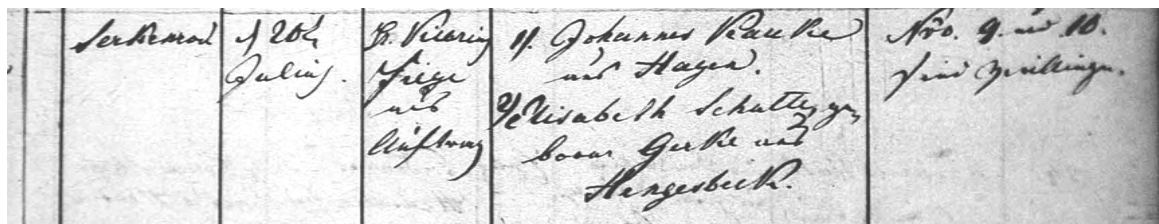 Serkenrod
d 20t
Julius.
H. Vicarius
Siege
aus
Auftrag
1/. Johannes Rauke
aus Hagen.
2/ Elisabeth Schulte, ge,
borne Gerke aus
Hengesbeck.
Nro. 9. und 10.
sind Zwillinge.